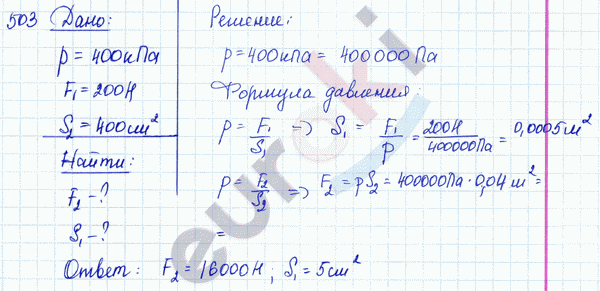 503 Дано:
p = 400 кПа
F₁ = 200 Н
S₂ = 400 см²
Найти:
F₂ - ?
S₁ - ?
Решение:
p = 400 кПа = 400 000 Па
Формула давления:
p = F₁/S₁ → S₁ = F₁/p = 200 Н/400000 Па = 0,0005 м²
p = F₂/S₂ → F₂ = pS₂ = 400000 Па · 0,04 м² =
=
Ответ: F₂ = 16000 Н; S₁ = 5 см²
euroki